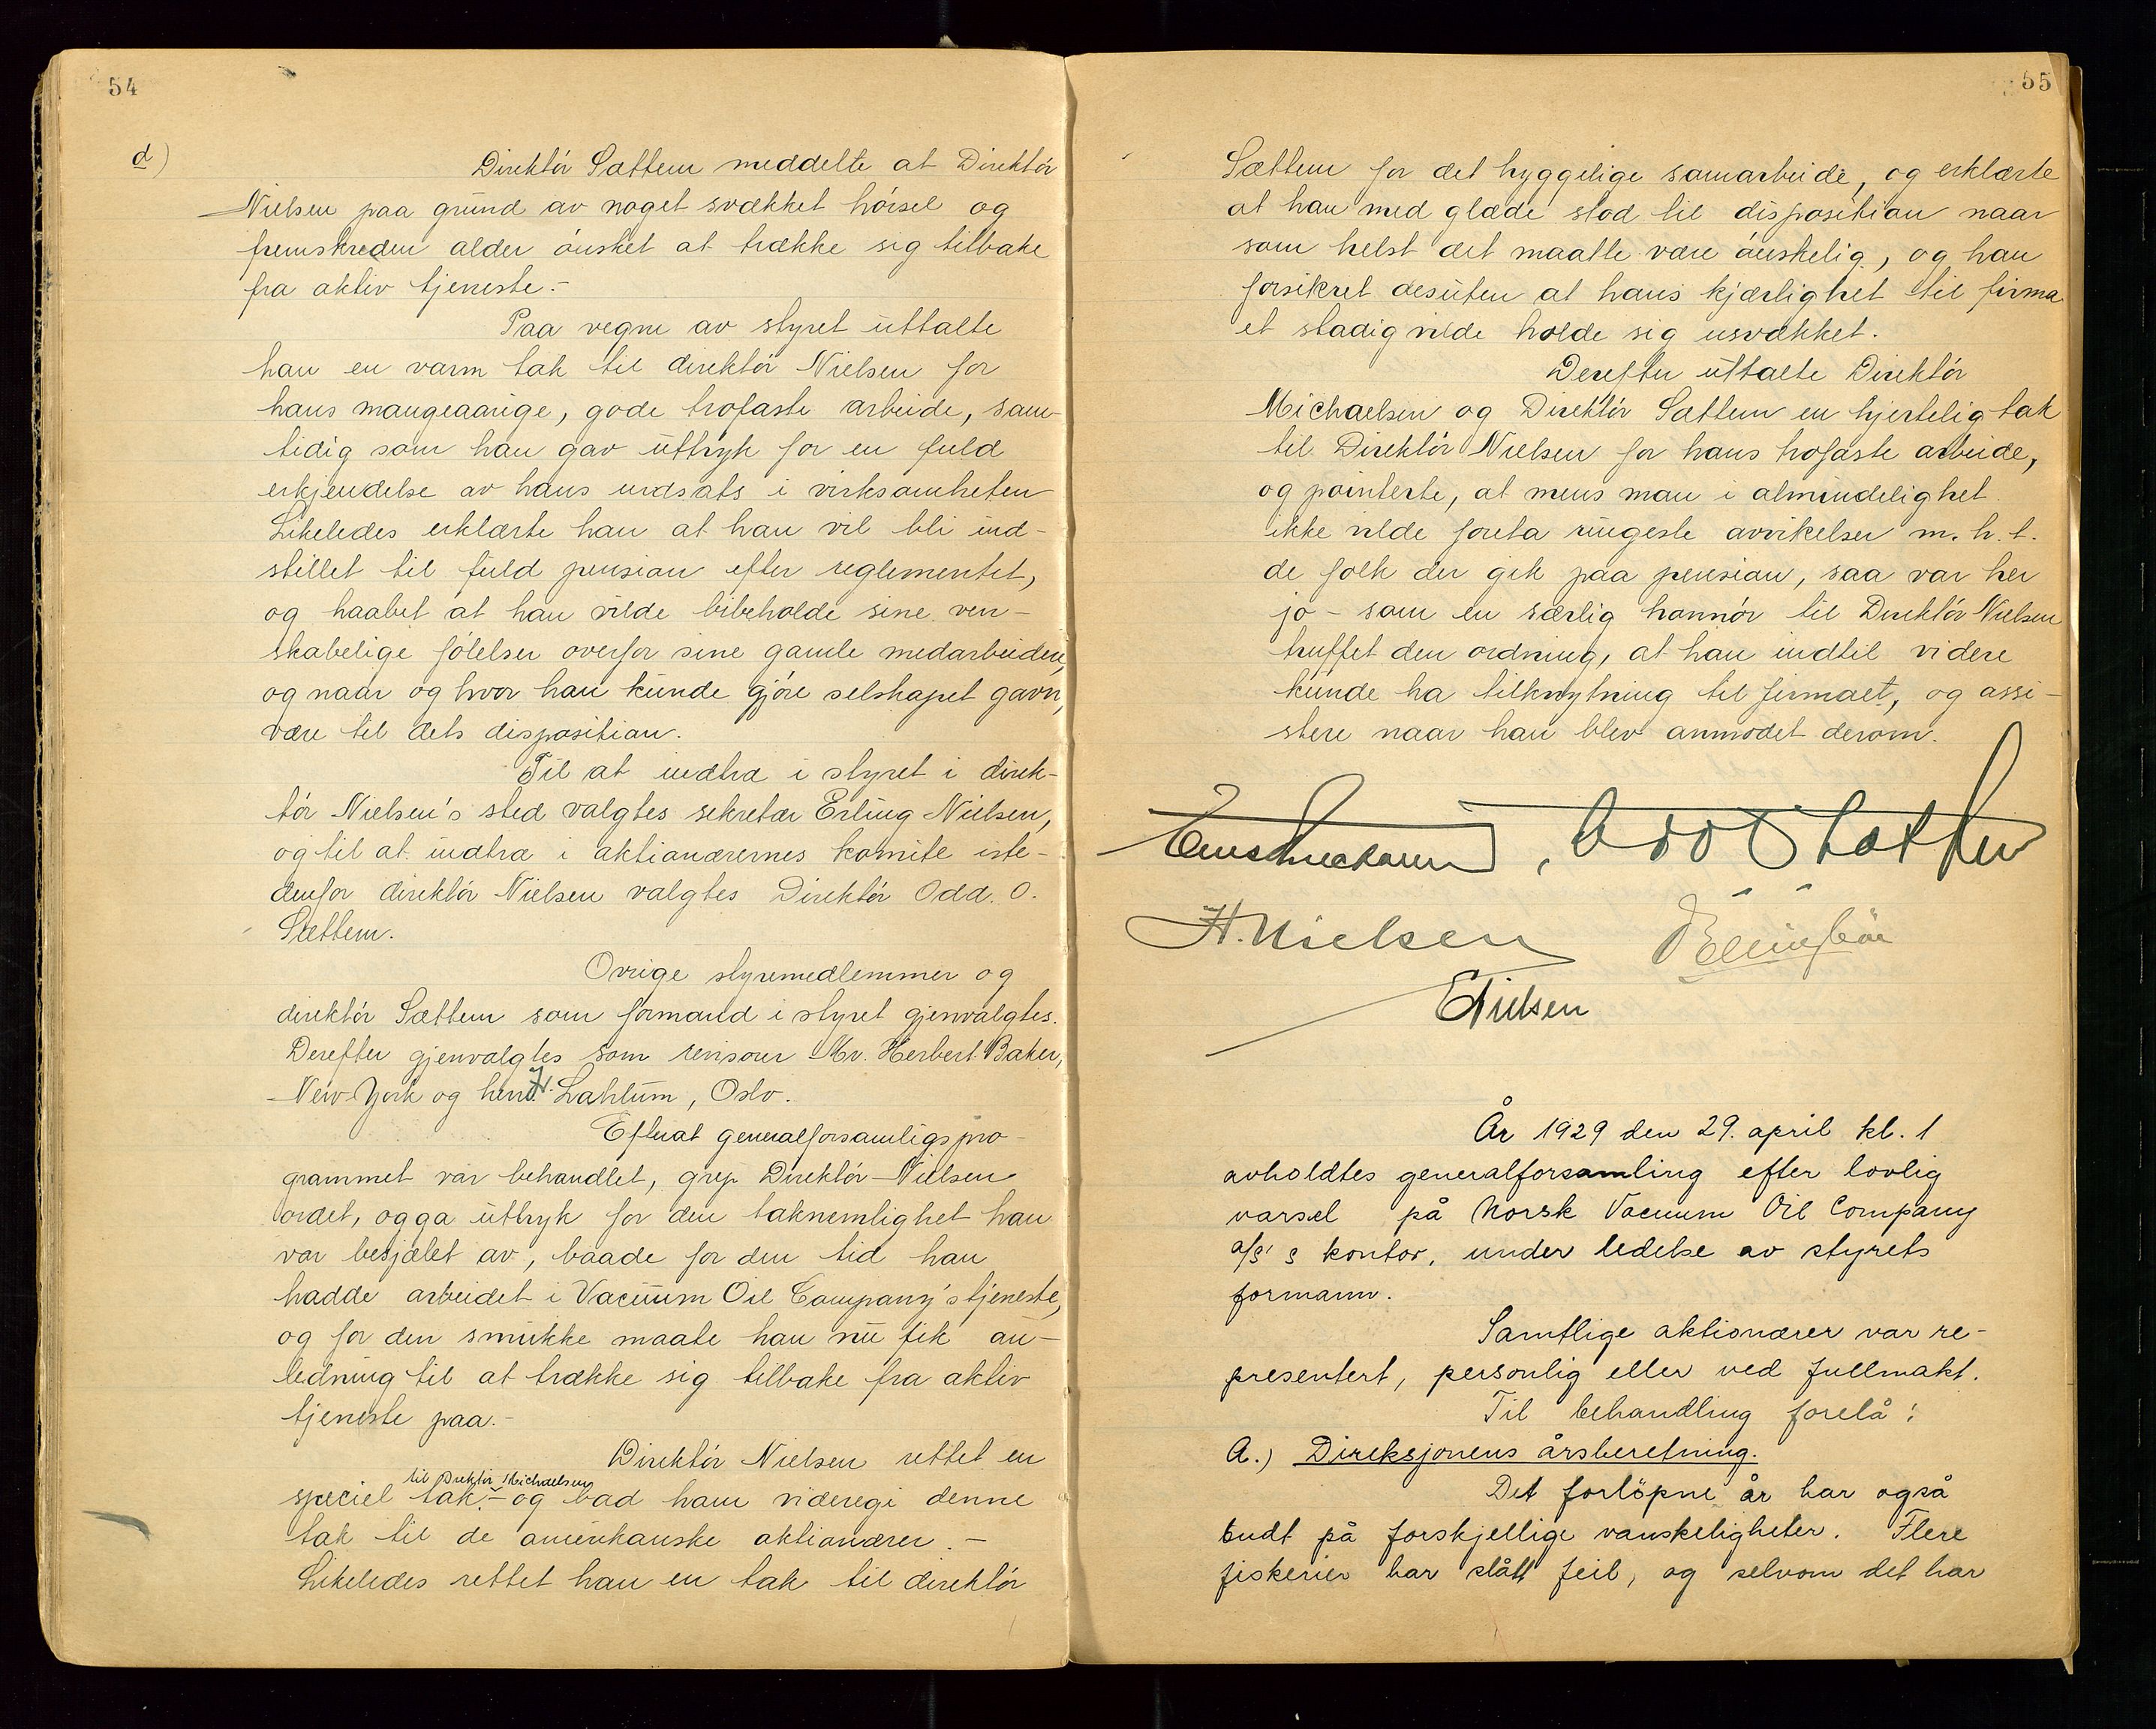 54
d)
Direktör Sættem meddelte at Direktör
Nielsen paa grund av noget svækket hörsel og
fremskreden alder önsket at trække sig tilbake
fra aktiv tjeneste.-
Paa vegne av styret uttalte
han en varm tak til direktör Nielsen for
hans mangeaarige, gode trofaste arbeide, sam-
tidig som han gav uttryk for en fuld
erkjendelse av hans indsats i virksomheten
Likeledes erklærte han at han vil bli ind-
stillet til fuld pension efter reglementet,
og haabet at han vilde bibeholde sine ven-
skabelige fölelser overfor sine gamle medarbeidere,
og naar og hvor han kunde gjöre selskapet gavn,
være til dets disposition.
Til at indtra i styret i direk-
tör Nielsen's sted valgtes sekretær Erling Nielsen,
og til at indtra i aktionærernes komite iste-
denfor direktör Nielsen valgtes Direktör Odd. O.
Sættem.
Ovrige styremedlemmer og
direktör Sættem som formand i styret gjenvalgtes.
Derefter gjenvalgtes som revisorer Mr. Herbert Baker,
New-York og herr H. Lahlum, Oslo.
Efterat generalforsamligspro-
grammet var behandlet, grep Direktör Nielsen
ordet, og ga uttryk for den taknemlighet han
var besjælet av, baade for den tid han
hadde arbeidet i Vacuum Oil Company's tjeneste,
og for den smukke maate han nu fik an-
ledning til at trække sig tilbake fra aktiv
tjeneste paa.-
Direktör Nielsen rettet en
til Direktör Michaelsen
speciel tak.- og bad ham videregi denne
tak til de amerikanske aktionærer.-
Likeledes rettet han en tak til direktör
55
Sættem for det hyggelige samarbeide, og erklærte
at han med glæde stod til disposition naar
som helst det maatte være önskelig, og han
forsikret desuten at hans kjærlighet til firma
et stadig vilde holde sig usvækket.
Derefter uttalte Direktör
Michaelsen og Direktör Sættem en hjertelig tak
til Direktör Nielsen for hans trofaste arbeide,
og pointerte, at mens man i almindelighet
ikke vilde foreta ringeste avvikelser m. h. t.
de folk der gik paa pension, saa var her
jo - som en særlig honnör til Direktör Nielsen
truffet den ordning, at han indtil videre
kunde ha tilknytning til firmaet, og assi-
stere naar han blev anmodet derom.
Odd O Sættem
H. Nielsen
E Nielsen
År 1929 den 29. april kl. 1
avholdtes generalforsamling efter lovlig
varsel på Norsk Vacuum Oil Company
a/s' s kontor, under ledelse av styrets
formann.
Samtlige aktionærer var re-
presentert, personlig eller ved fullmakt.
Til behandling forelå:
A.) Direksjonens årsberetning.
Det forlöpne år har også
budt på forskjellige vanskeligheter. Flere
fiskerier har slått feil, og selvom det har